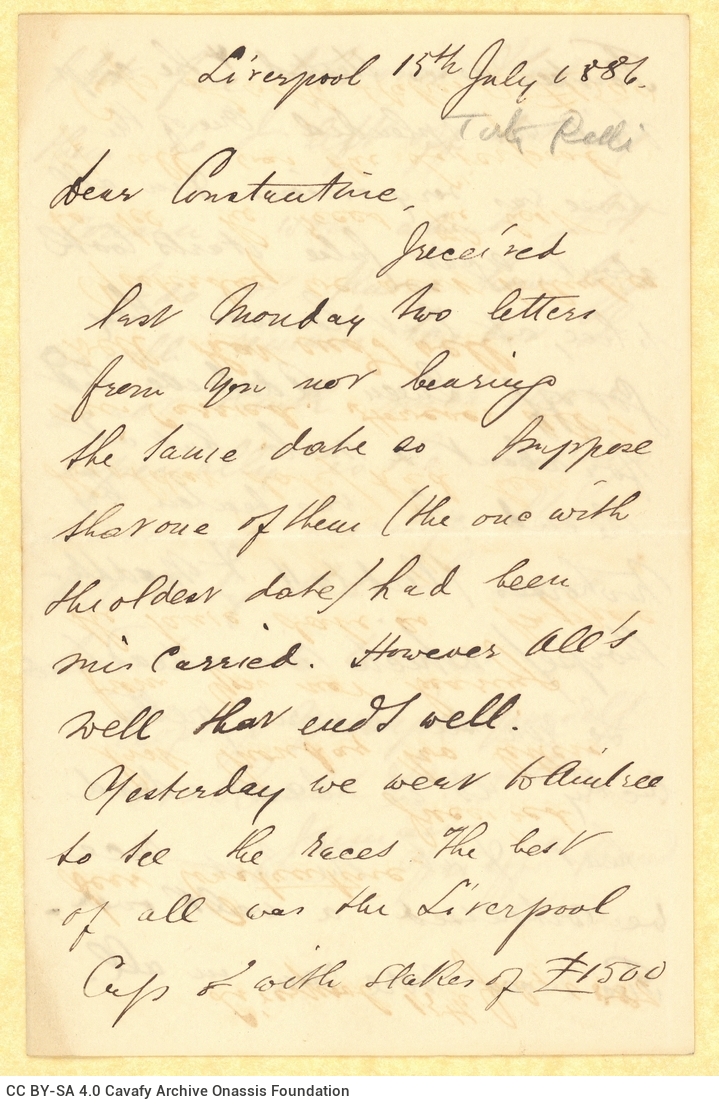 Liverpool 15th July 1886.
Toty Ralli
Dear Constantine,
I received
last Monday two letters
from you not bearing
the same date so I suppose
that one of them (the one with
the oldest date) had been
mis carried. However All's
well that end's well.
Yesterday we went to Aintree
to see the races The best
of all was the Liverpool
Cup & with stakes of £1500
CC BY-SA 4.0 Cavafy Archive Onassis Foundation